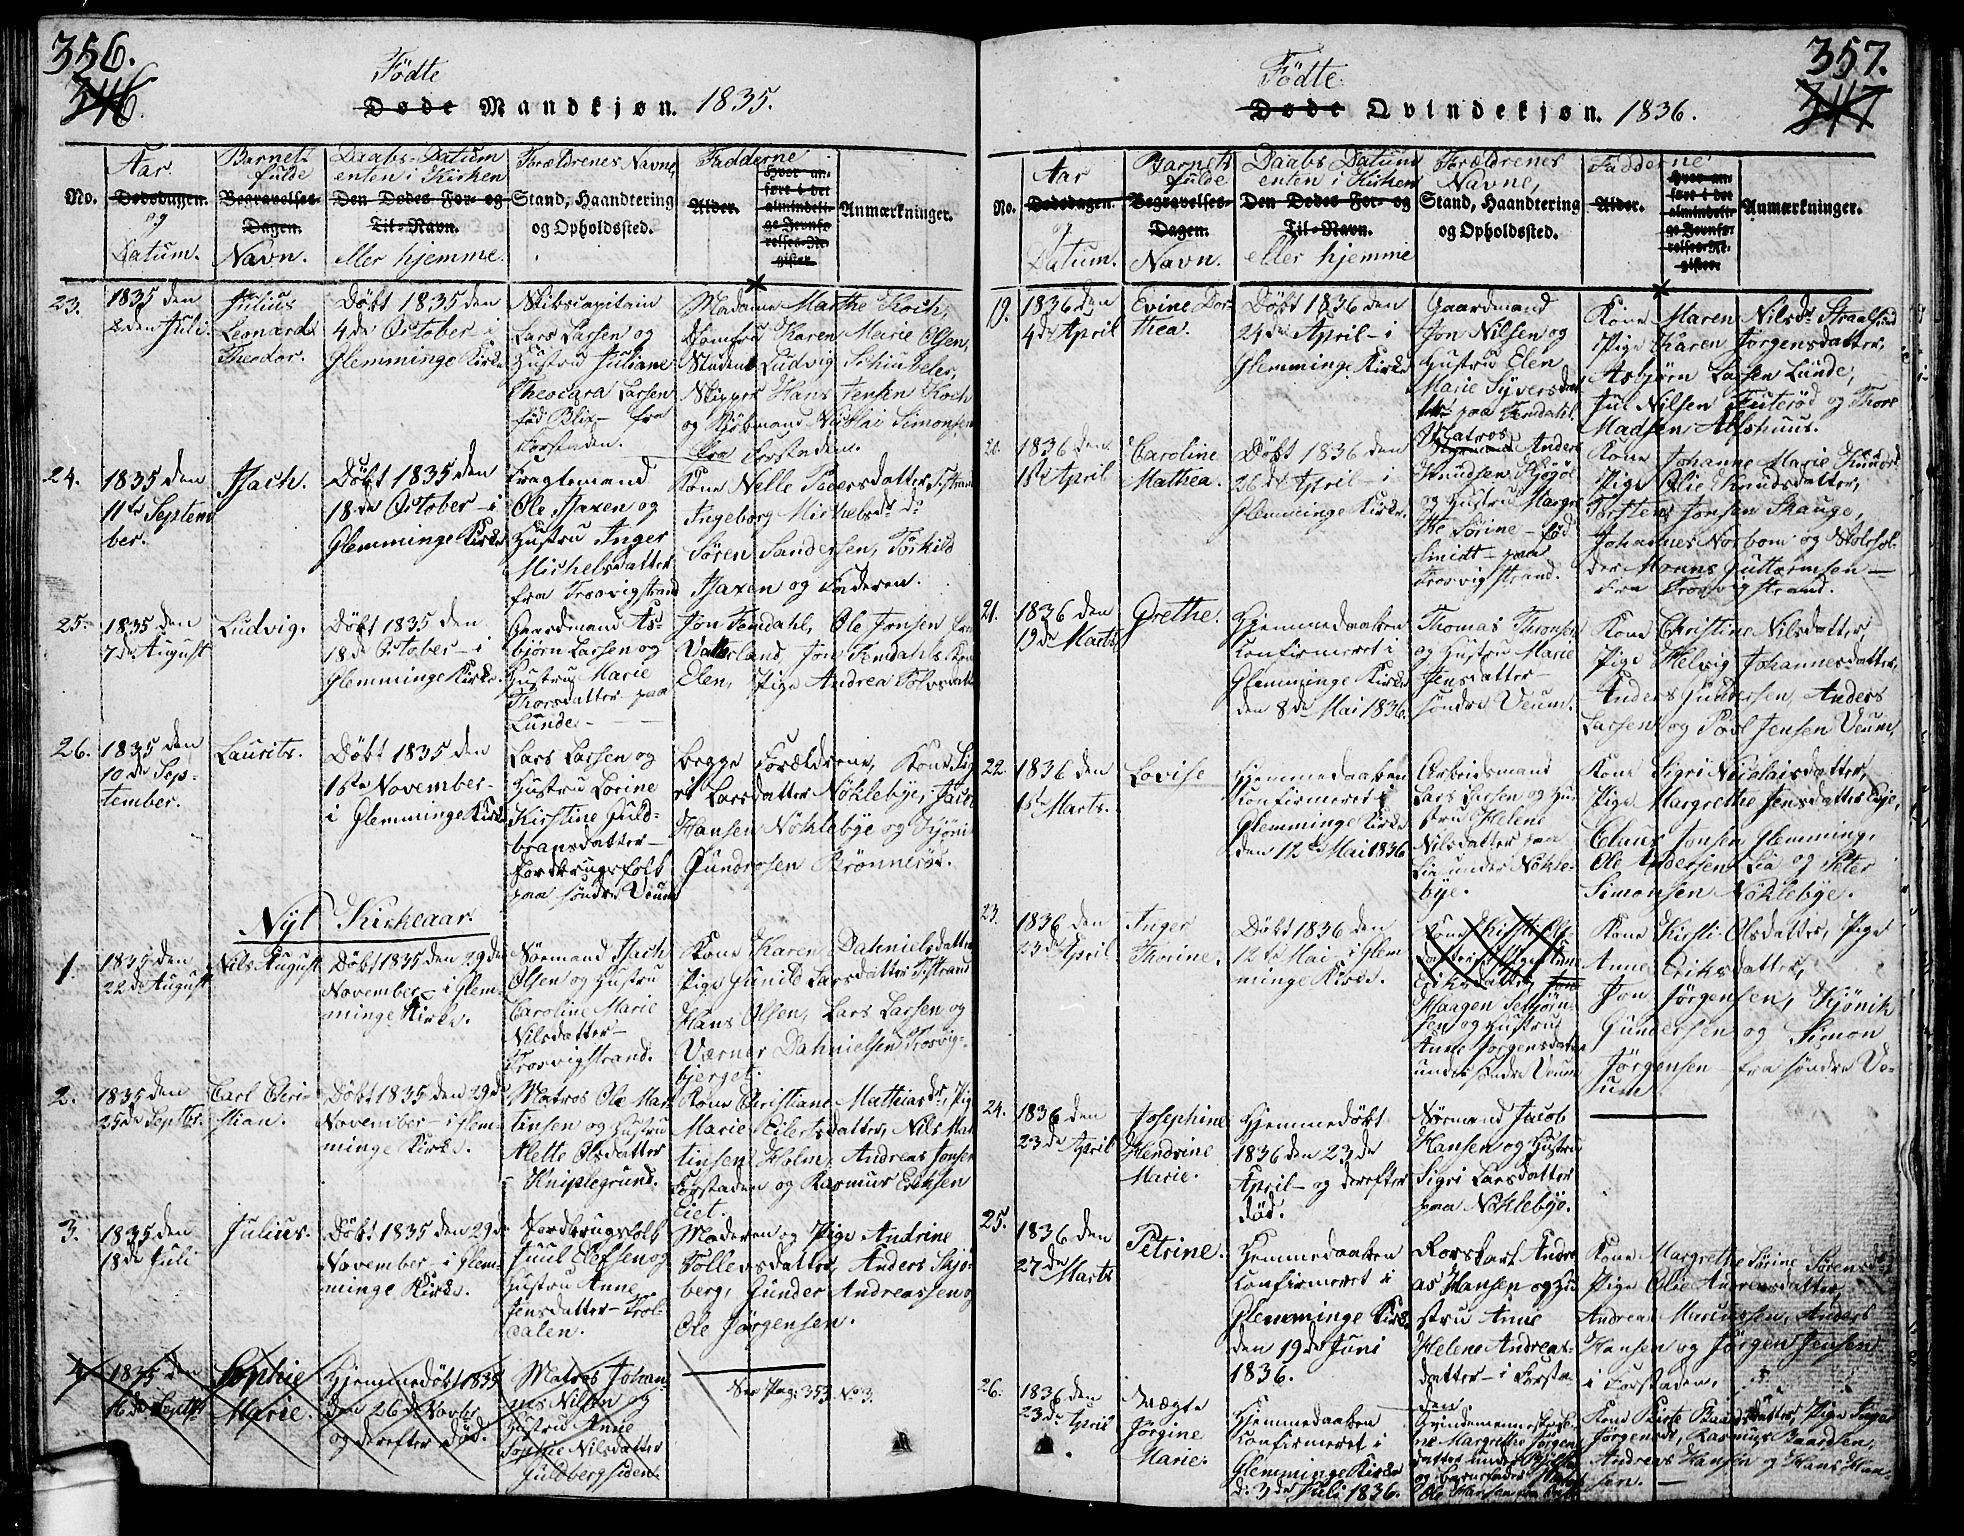 356.
346.
Födte
Døde Mandkjøn. 1835.
No.
Aar
Dødsdagen.
og
Datum.
Barnets
fulde
Begravelses-
Dagen.
Navn.
Daabs-Datum
enten i Kirken
Den Dødes For- og
Til-Navn.
eller hjemme.
Forældrenes Navne,
Stand, Haandtering
og Opholdssted.
Fadderne
Alder.
Hvor an-
ført i det
almindeli-
ge Jevnfø-
relses-Re-
gister.
Anmærkninger.
23.
1835 den
2den Juli.
Julius
Leonard
Theodor.
Döbt 1835 den
4de October - i
Glemminge Kirke
Skibscapitain
Lars Larsen og
Hustru Juliane
Theocara Larsen
född Blix - fra
Forstaden.
Madame Marthe Koch,
Jomfru Karen Marie Olsen,
Student Ludvig Schiubeler,
Skipper Hans Jensen Koch
og Kjöbmand Nicolai Simonsen
fra Forstaden.
24.
1835 den
11te Septem
ber.
Isach.
Döbt 1835 den
18de October - i
Glemminge Kirke
Fragtemand
Ole Isaxen og
Hustru Inger
Michelsdatter
fra Trosvigstrand
Kone Nelle Pedersdatter
Ingeborg Michelsdr
Sören Sandersen, Törkild
Isaxen og Faderen.
25.
1835 den
7de August
Ludvig.
Döbt 1835 den
18de October - i
Glemminge Kirke.
Gaardmand As-
björn Larsen og
Hustru Marie
Thorsdatter paa
Lunde.
Jon Femdahl, Ole Jensen
Vatterland, Jon Femdahls Kone
Elen, Pige Andrea
26.
1835 den
10de Sep-
tember.
Laurits.
Döbt 1835 den
15te November -
i Glemminge Kirke
Lars Larsen og
Hustru Lorine
Kirstine Guld-
bransdatter -
Jordbrugsfolk
paa söndre Veum
begge Forældrene, Kone Sig
ri Larsdatter Nöklebye, Jacob
Hansen Nöklebye og Kjöni
Gundersen Krönneröd.
Nÿt Kirkeaar
1.
1835 den
22de August
Nils August
Döbt 1835 den 29de
November - i Glem-
minge Kirke.
Nörmand Isach
Olsen og Hustru
Caroline Marie
Nilsdatter -
Trosvigstrand.
Kone Karen Dahnielsdatter
Pige Gunild Larsdatter
Hans Olsen, Lars Larsen og
Værner Dahnielsen Trosvig-
bjerget.
2.
1835 den
25de Septbr.
Carl Chri-
stian.
Döbt 1835 den 29de
November - i Glem-
minge Kirke.
Matros Ole Mar
tinsen og Hustru
Alette Olsdatter
Kniplegrund.
Kone Christiane Mathiasdr Pige
Marie Eilertsdatter, Nils Mar
tinsen Holm, Andreas Jonsen
Forstaden og Rasmus Eriksen
Eiet.
3.
1835 den
18de Juli
Julius.
Döbt 1835 den 29de
November - i Glem-
minge Kirke.
Jordbrugsfolk
Juul Elefsen og
Hustru Anne
Jensdatter - Trol
dalen.
Moderen og Pige Andrine
Tollevsdatter, Anders Skjö-
berg, Gunder Andreassen og
Ole Jörgensen.
4.
1835 den
16de Septbr
Sophie
Marie.
Hjemmedöbt 1835
den 26de Novbr
og derefter död.
Matros Johan-
nes Nilsen og
Hustru Anne
Sophie Nilsdatter
Guldbergsiden
See Pag: 353. No 3.
357.
347
Födte
Døde Qvindekjøn. 1836.
No.
Aar
Dødsdagen.
og
Datum.
Barnets
fulde
Begravelses-
Dagen.
Navn.
Daabs Datum
enten i Kirken
Den Dødes For- og
Til-Navn.
eller hjemme
Forældrenes
Navne,
Stand, Haandtering
og Opholdssted.
Fadderne
Alder.
Hvor an-
ført i det
almindeli-
ge Jevnfø-
relses-Re-
gister.
Anmærkninger.
19.
1836 den
4de April
Evine Dor-
thea.
Döbt 1836 den
24de April - i
Glemminge Kirke
Gaardmand
Jon Nilsen og
Hustru Elen
Marie Syversdat
ter paa Femdahl.
Kone Maren Nilsdr
Pige Karen Jörgensdatter,
Asbjörn Larsen Lunde,
Jul Nilsen Tuteröd og Thore
Madsen Alshuus.
20.
1836 den
1ste April
Caroline
Mathea.
Döbt 1836 den
26de April - i
Glemminge Kirke.
Matros
Anders
Knudsen
og Hustru Margre
the Sörine - föd
Smidt - paa
Trosvigstrand.
Kone Johanne Marie
Pige Olie Knudsdatter,
Torstens Jonsen Skauge,
Johannes Norbom og
der Monns Guttormsen -
fra Trosvigstrand.
21.
1836 den
19de Marts
Grethe.
Hjemmedaaben
Konfirmeret i
Glemminge Kirke
den 8de Mai 1836.
Thomas Thronsen
og Hustru Marie
Jensdatter -
söndre Veum.
Kone Christine Nilsdatter,
Pige Helvig Johannesdatter,
Anders Gundersen, Anders
Larsen og Povl Jensen Veum,
22.
1836 den
1ste Marts.
Lovise
Hjemmedaaben
Konfirmeret i
Glemminge Kirke
den 12te Mai 1836
Arbeidsmand
Lars Larsen og Hu-
stru Helene
Nilsdatter paa
Lie under Nökle-
bye.
Kone Sigri Nicolaisdatter,
Pige Margrethe Jensdatter
Claus Jonsen Glemming,
Ole Andersen Lie og Peter
Simonsen Nöklebye.
23.
1836 den
23de April
Inger
Thrine.
Döbt 1836 den
12te Mai - i Glem
minge Kirke.
Kone Kirsti Ols-
datter, Pige Anne
Eriksdatter,
Haagen Setbjörn-
sen og Hustru
Anne Jörgensdatter
under söndre Veum
Kone Kirsti Olsdatter, Pige
Anne Eriksdatter,
Jon Jörgensen, Kjönik
Gundersen og Simon
Jörgensen fra söndre Ve-
um
24.
1836 den
23de April
Josephine
Hendrine
Marie.
Hjemmedöbt
1836 den 23de
April - og derefter
död.
Nörmand Jacob
Hansen og Hustru
Sigri Larsdatter
paa Nöklebye.
25.
1836 den
27de Marts
Petrine.
Hjemmedaaben
Konfirmeret i
Glemminge Kirke
den 19de Juni
1836.
Rorskarl Andre
as Hansen og Hu
stru Anne
Helene Andreas-
datter - i Forsta-
den
Kone Margrethe Sörine Sörensdr
Pige Olie Andreasdatter,
Andreas Marcussen, Anders
Hansen og Jörgen Jensen
i Forstaden.
26.
1836 den
23de April
Uægte
Jörgine
Marie.
Hjemmedaaben
Konfirmeret i
Glemminge Kirke
d: 3de Juli 1836.
Qvindemennesket
Margrethe Jörgens
datter under
og Barnefader
Ole Hansen
Kone Birte Baardsdatter, Pige Inger
Jörgensdr, Rasmus Baardsen,
Andreas Hansen og Hans Han-
sen.